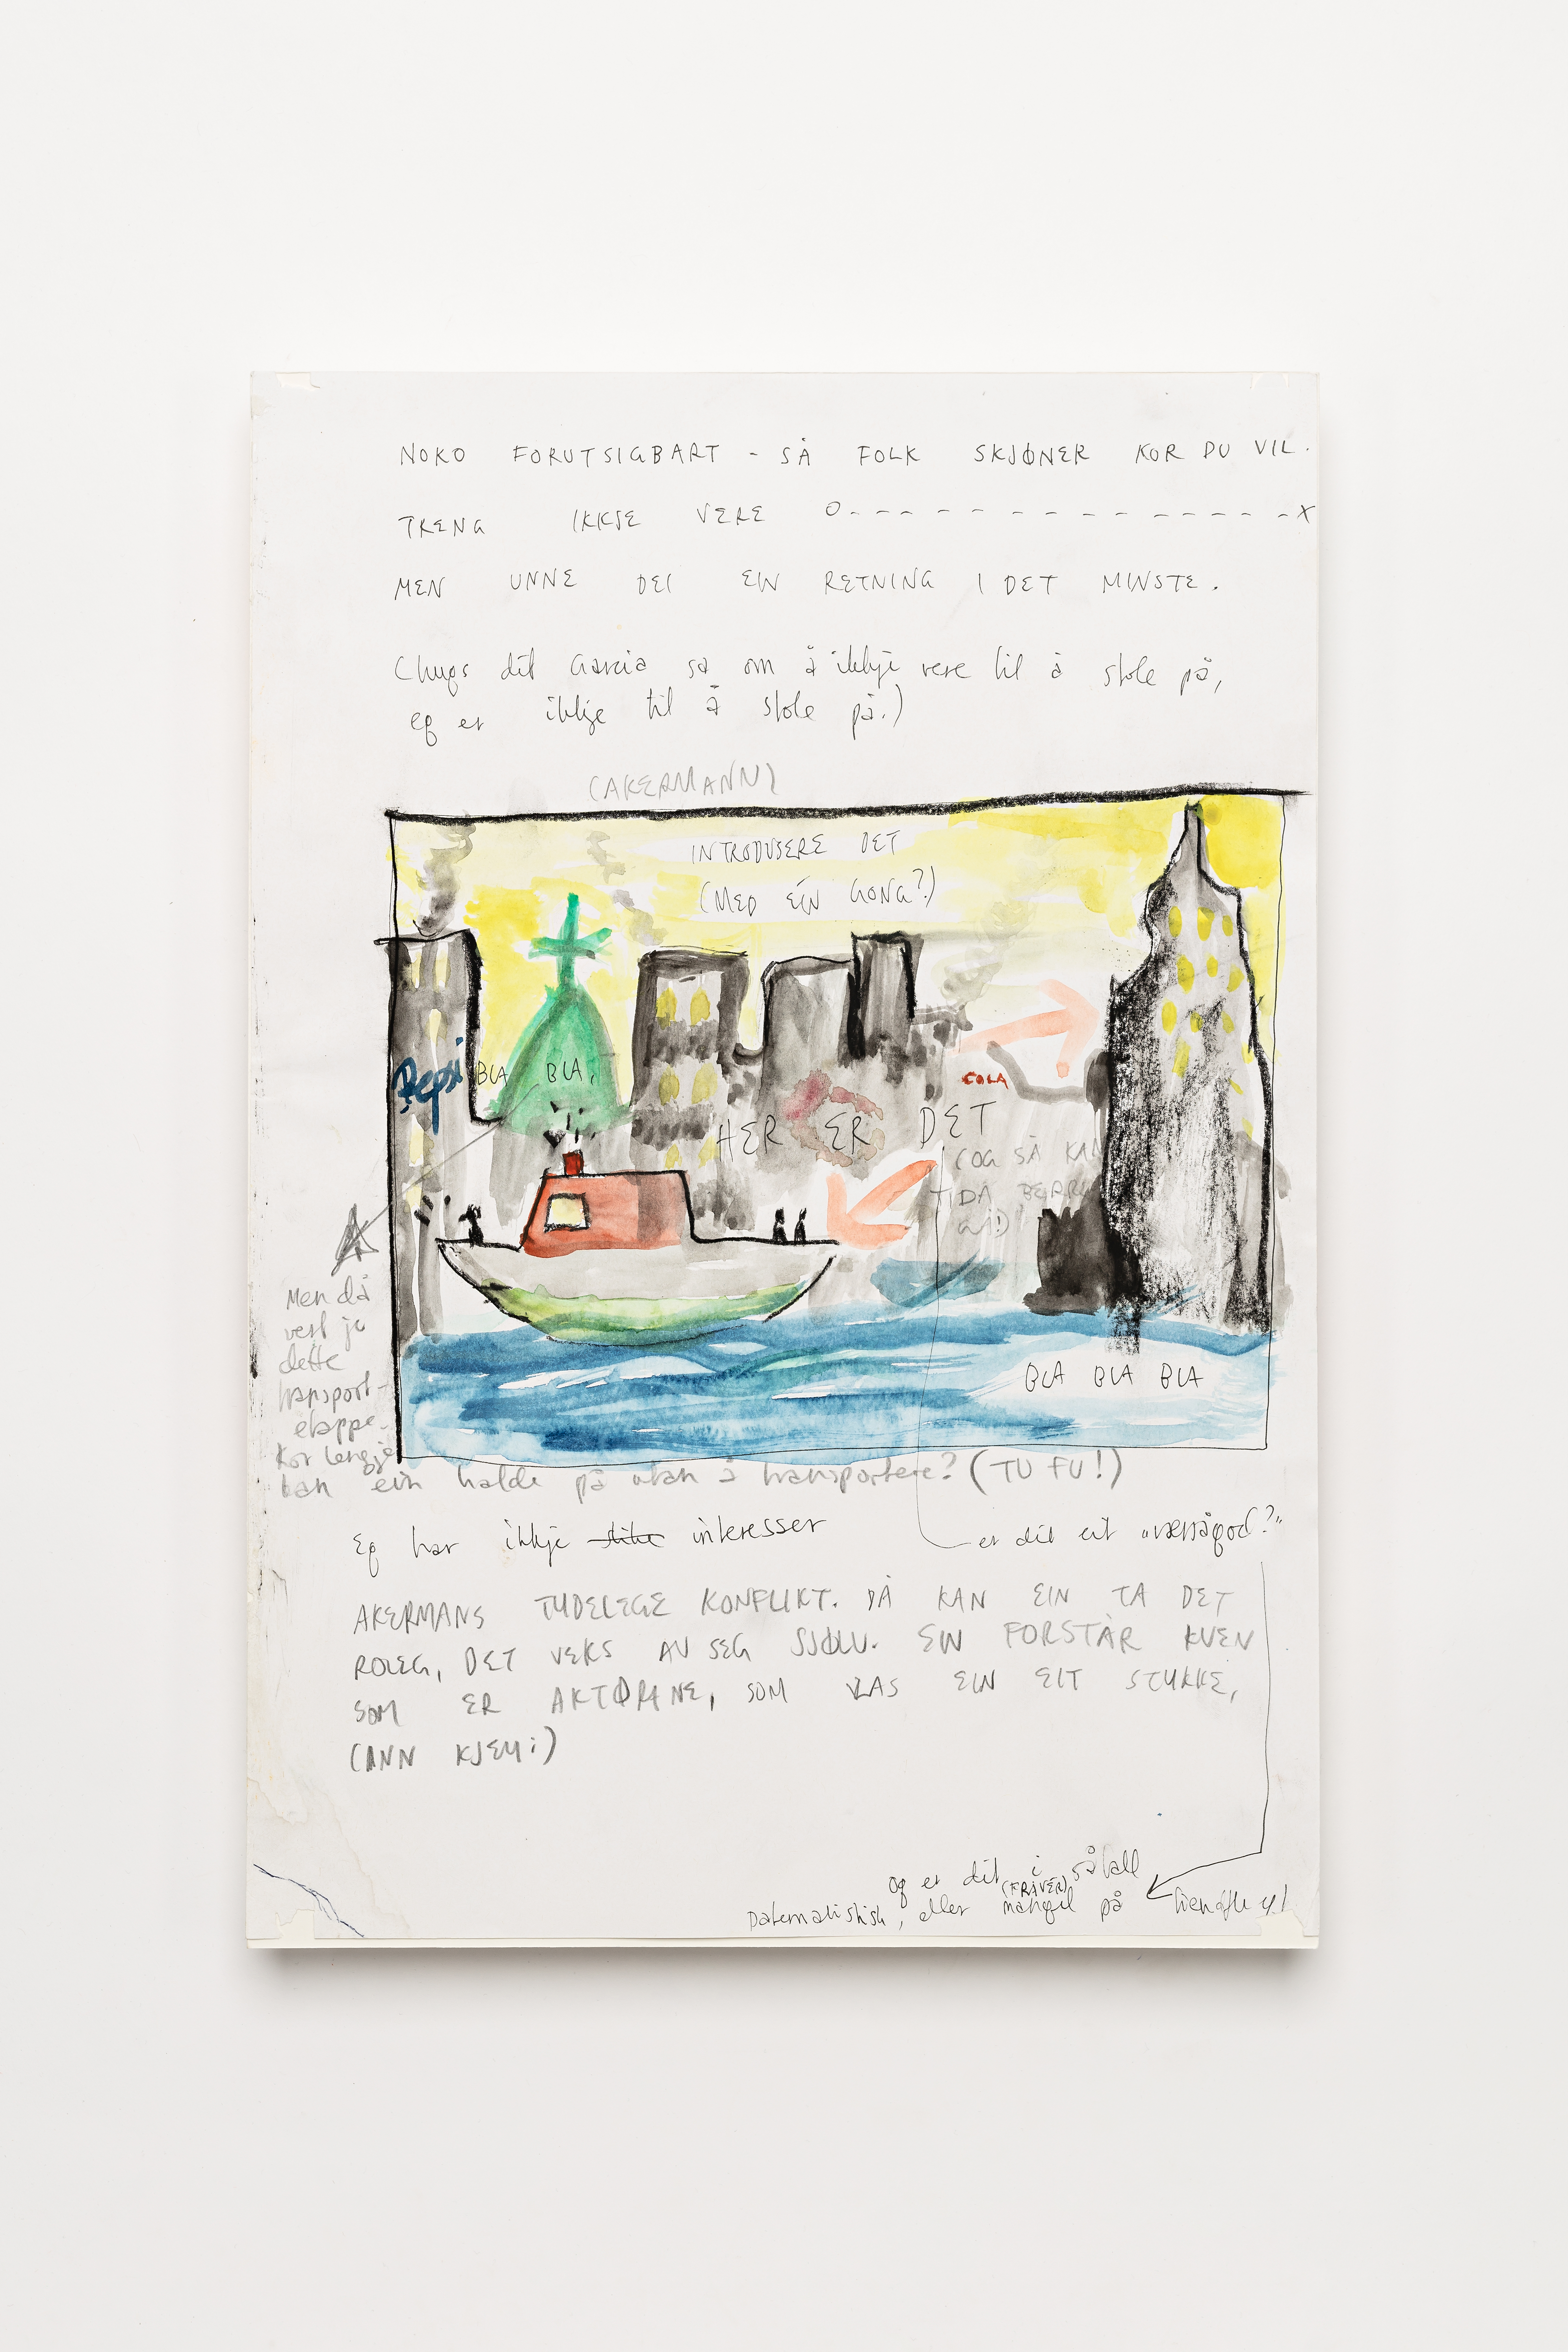 NOKO FORUTSIGBART - SÅ FOLK SKJØNER KOR DU VIL.
TRENG IKKJE VERE O--------------X
MEN UNNE DEI EIN RETNING I DET MINSTE.
(hugs dit Garcia sa om å ikkje vere til å stole på,
eg er ikkje til å stole på.)
(AKERMANN)
INTRODUSERE DET
(MED EIN GONG?)
Pepsi
BLA BLA,
COLA
HER ER DET
(OG SÅ KAN
DÅ
BLA BLA BLA
Men då
vert jo
dette
transport-
etappe.
Kor lengje
kan ein halde på utan å transportere? (TU FU!)
Eg har ikkje interesser
er dit eit "værsågod?"
AKERMANS TYDELEGE KONFLIKT. DÅ KAN EIN TA DET
ROLEG, DET VEKS AV SEG SJØLV. EIN FORSTÅR KVEN
SOM ER AKTØRANE, SOM LAS EIN EIT STYKKE,
(ANN KJEM:)
og er dit i såfall
(FRÅVER)
paternalistisk, eller mangel på